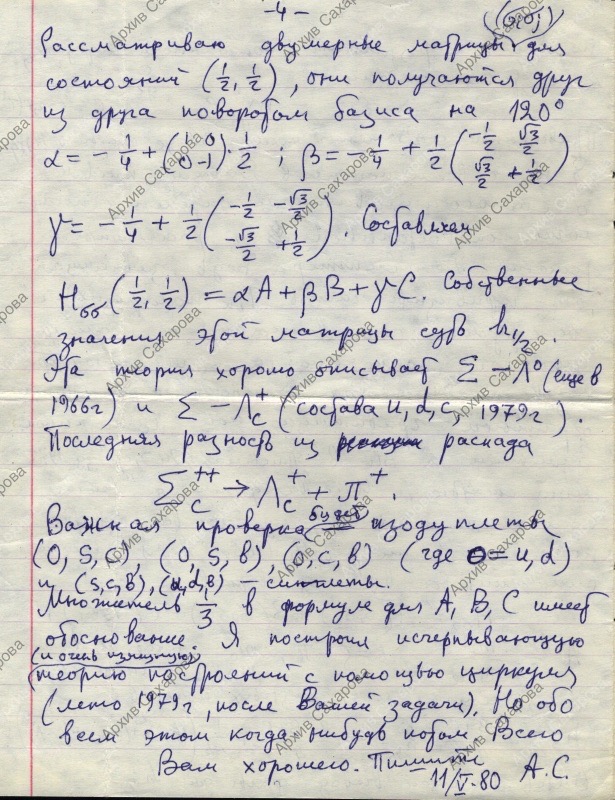 -4-
Рассматриваю двумерные матрицы для
состояний (1/2, 1/2), они получаются друг
из друга поворотом базиса на 120°
α = - 1/4 + (1 0 / 0 -1) · 1/2 ; β = - 1/4 + 1/2 (-1/2 √3/2 / √3/2 +1/2)
γ = - 1/4 + 1/2 (-1/2 -√3/2 / -√3/2 +1/2). Составляем
Hσσ (1/2, 1/2) = αA + βB + γC. Собственные
значения этой матрицы суть h1/2.
Эта теория хорошо описывает Σ - Λ⁰ (еще в
1966г) и Σ - Λc⁺ (состава u, d, c, 1979г).
Последняя разность из распада
Σc⁺⁺ → Λc⁺ + π⁺.
Важная проверка будет изодуплеты
(O, s, c), (O, s, b), (O, c, b) (где O = u, d)
и (s, c, b), (u, d, b) — синглеты.
Множитель 1/3 в формуле для A, B, C имеет
обоснование. Я построил исчерпывающую
(и очень изящную)
теорию построений с помощью циркуля
(лето 1979г, после Вашей задачи). Но обо
всем этом когда нибудь потом. Всего
Вам хорошего. Пишите
11/V-80 А.С.
Архив Сахарова